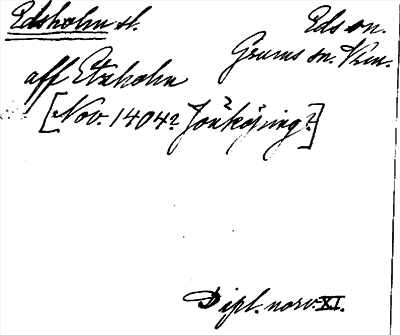 Edsholm sl. Eds sn.
Grums sn. Vrm.
aff Etzholm
[Nov. 1404? Jönköping?]
Dipl. norv. XI.